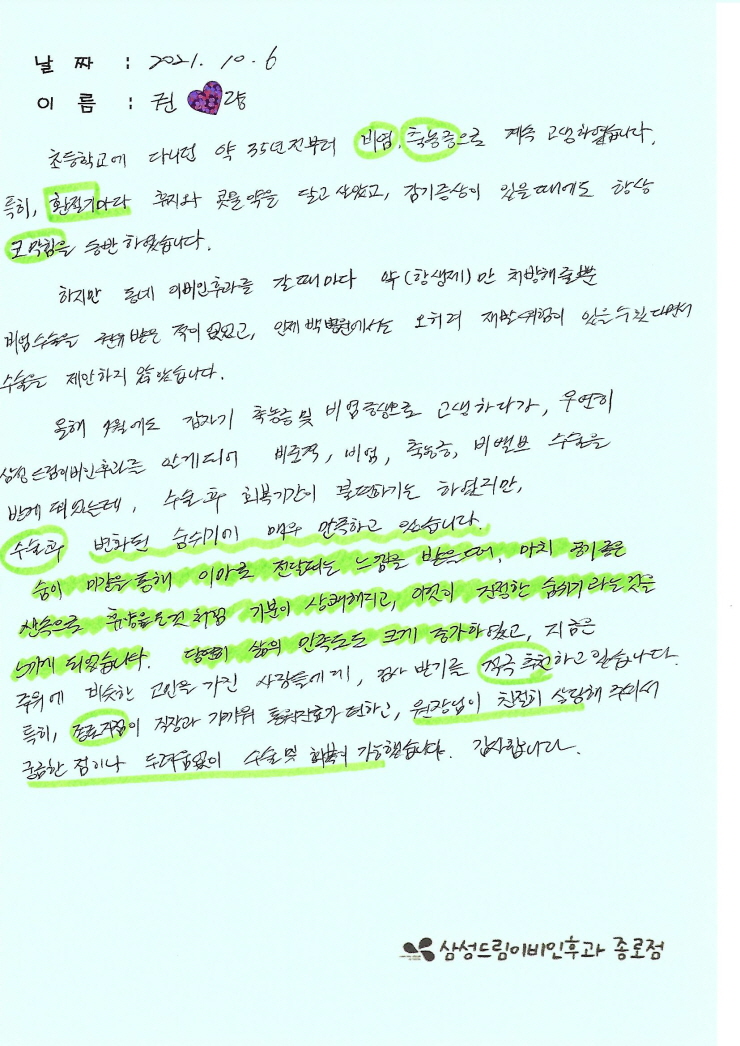 날 짜 : 2021. 10. 6
이 름 : 권 량
초등학교에 다니던 약 35년전부터 비염, 축농증으로 계속 고생하였습니다.
특히, 환절기마다 휴지와 콧물약을 달고 살았고, 감기증상이 있을때에도 항상
코막힘을 동반하였습니다.
하지만 동네 이비인후과를 갈때마다 약(항생제)만 처방해줄뿐
비염수술을 권유받은 적이 없었고, 인제백병원에서는 오히려 재발위험이 있을수있다면서
수술을 제안하지 않았습니다.
올해 9월에도 갑자기 축농증 및 비염증상으로 고생하다가, 우연히
삼성드림이비인후과를 알게되어 비중격, 비염, 축농증, 비밸브 수술을
받게 되었는데, 수술후 회복기간이 불편하기는 하였지만,
수술후 변화된 숨쉬기에 매우 만족하고 있습니다.
숨이 미간을 통해 이마로 전달되는 느낌을 받으며, 마치 공기좋은
산속으로 휴양을 온것처럼 기분이 상쾌해지고, 이것이 진정한 숨쉬기라는것을
느끼게 되었습니다. 당연히 삶의 만족도도 크게 증가하였고, 지금은
주위에 비슷한 고민을 가진 사람들에게, 검사 받기를 적극 추천하고 있습니다.
특히, 종로지점이 직장과 가까워 통원진료가 편하고, 원장님이 친절히 상담해 주셔서
궁금한 점이나 두려움없이 수술 및 회복이 가능했습니다. 감사합니다.
삼성드림이비인후과 종로점